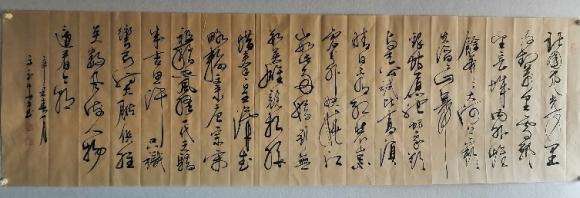 北国风光千里
冰封万里雪飘
望长城内外惟
余莽莽大河上下顿
失滔滔山舞
银蛇原驰蜡象欲
与天公试比高须
晴日看红装素
裹分外妖娆江
山如此多娇引无
数英雄竞折腰
惜秦皇汉武
略输文采唐宗宋
祖稍逊风骚一代天骄
成吉思汗只识
弯弓射大雕俱往
矣数风流人物
还看今朝